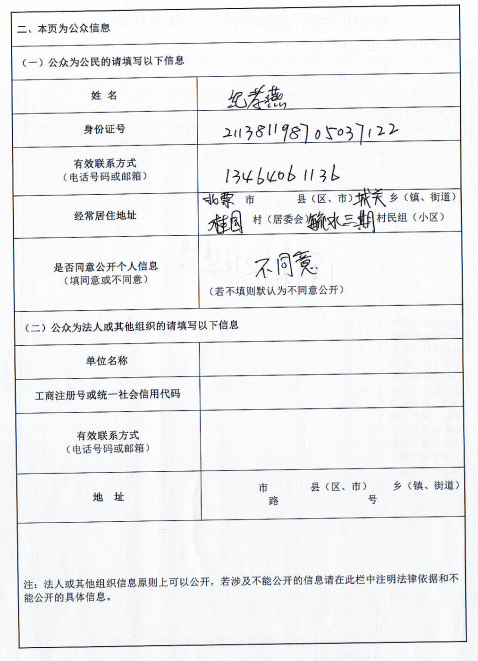 二、本页为公众信息
（一）公众为公民的请填写以下信息
姓 名 纪孝燕
身份证号 211381198705037122
有效联系方式
（电话号码或邮箱） 13464061136
北票 市 县（区、市）城关 乡（镇、街道）
经常居住地址 桂园 村（居委会） 水三期 村民组（小区）
是否同意公开个人信息
（填同意或不同意） 不同意
（若不填则默认为不同意公开）
（二）公众为法人或其他组织的请填写以下信息
单位名称
工商注册号或统一社会信用代码
有效联系方式
（电话号码或邮箱）
地 址 市 县（区、市） 乡（镇、街道）
路 号
注：法人或其他组织信息原则上可以公开，若涉及不能公开的信息请在此栏中注明法律依据和不
能公开的具体信息。